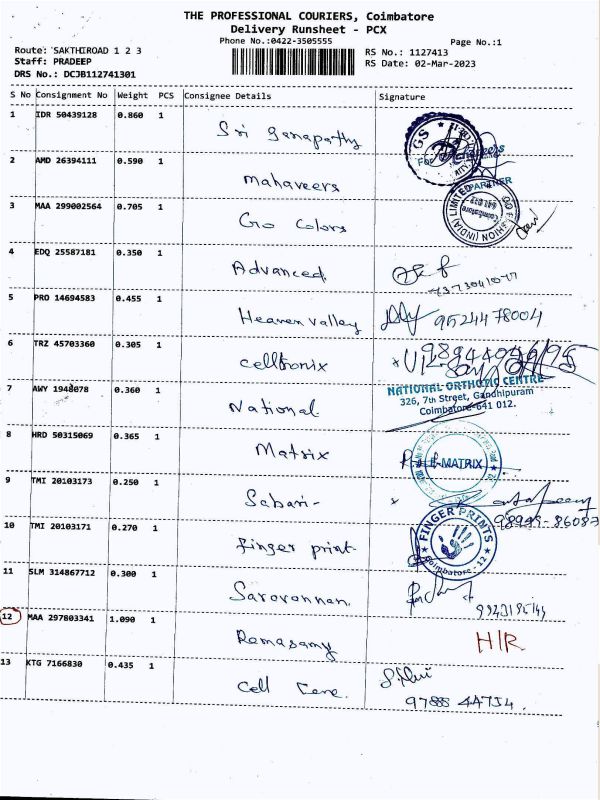 THE PROFESSIONAL COURIERS, Coimbatore
Delivery Runsheet - PCX
Phone No.:0422-3505555
Page No.:1
Route: SAKTHIROAD 1 2 3
RS No.: 1127413
Staff: PRADEEP
RS Date: 02-Mar-2023
DRS No.: DCJB112741301
S No Consignment No Weight PCS Consignee Details Signature
1 IDR 50439128 0.860 1
Sri ganapathy
GS
For Mahaveers
2 AMD 26394111 0.590 1
PARTNER
mahaveers
3 MAA 299002564 0.705 1
GO FASHION (INDIA) LIMITED
Coimbatore
641 012
Go Colors
4 EDQ 25587181 0.350 1
Advanced
7373041077
5 PRO 14694583 0.455 1
Heaven valley
9524478004
6 TRZ 45703360 0.305 1
celltronix
NATIONAL ORTHOTIC CENTRE
7 AWY 1948078 0.360 1
326, 7th Street, Gandhipuram
Coimbatore-641 012.
National
8 HRD 50315069 0.365 1
Matrix
E-MATRIX
9 TMI 20103173 0.250 1
Sabari-
10 TMI 20103171 0.270 1
FINGER PRINTS
Coimbatore - 12
finger print
11 SLM 314867712 0.300 1
Saravannan
12 MAA 297803341 1.090 1
Ramasamy
H/R
13 KTG 7166830 0.435 1
Cell